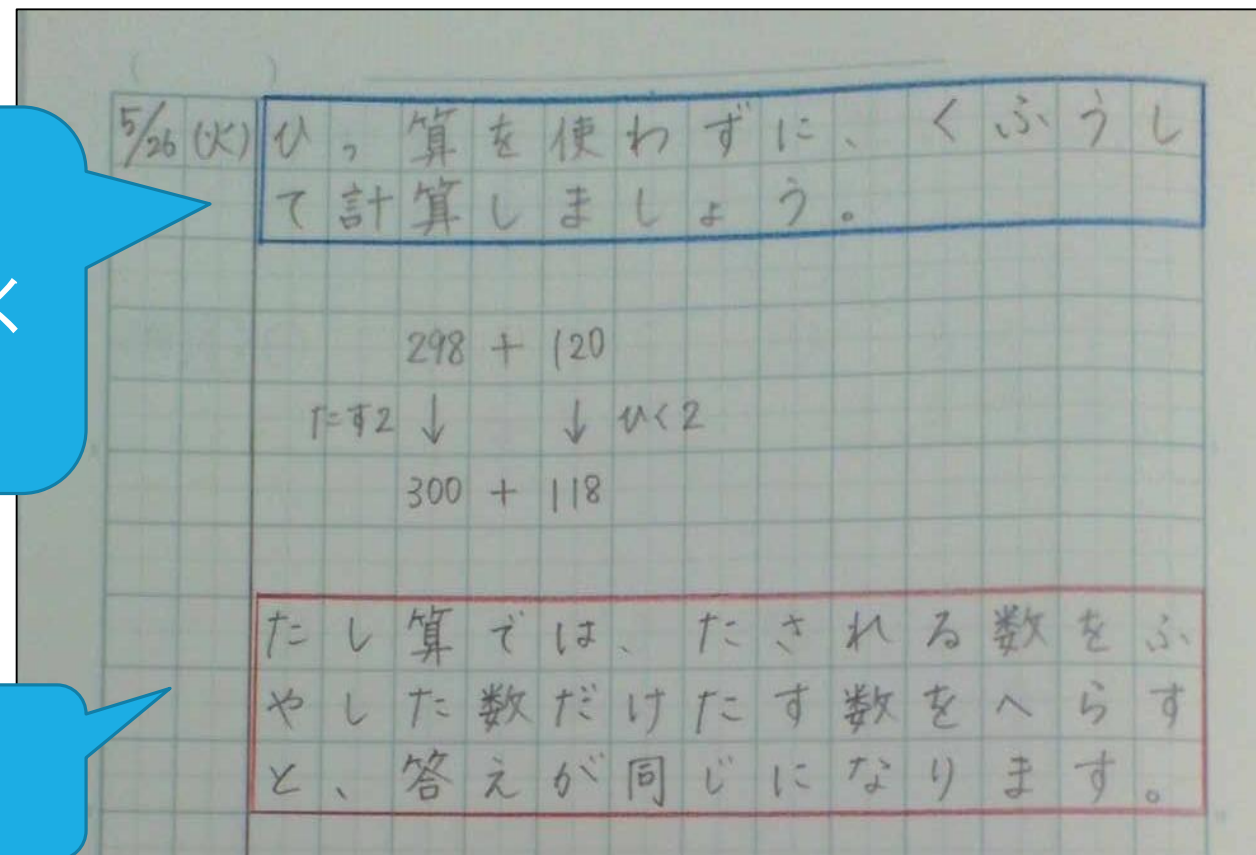 5/26 (火) ひっ算を使わずに、くふうし
て計算しましょう。
298 + 120
たす2 ↓ ↓ ひく2
300 + 118
たし算では、たされる数をふ
やした数だけたす数をへらす
と、答えが同じになります。
く